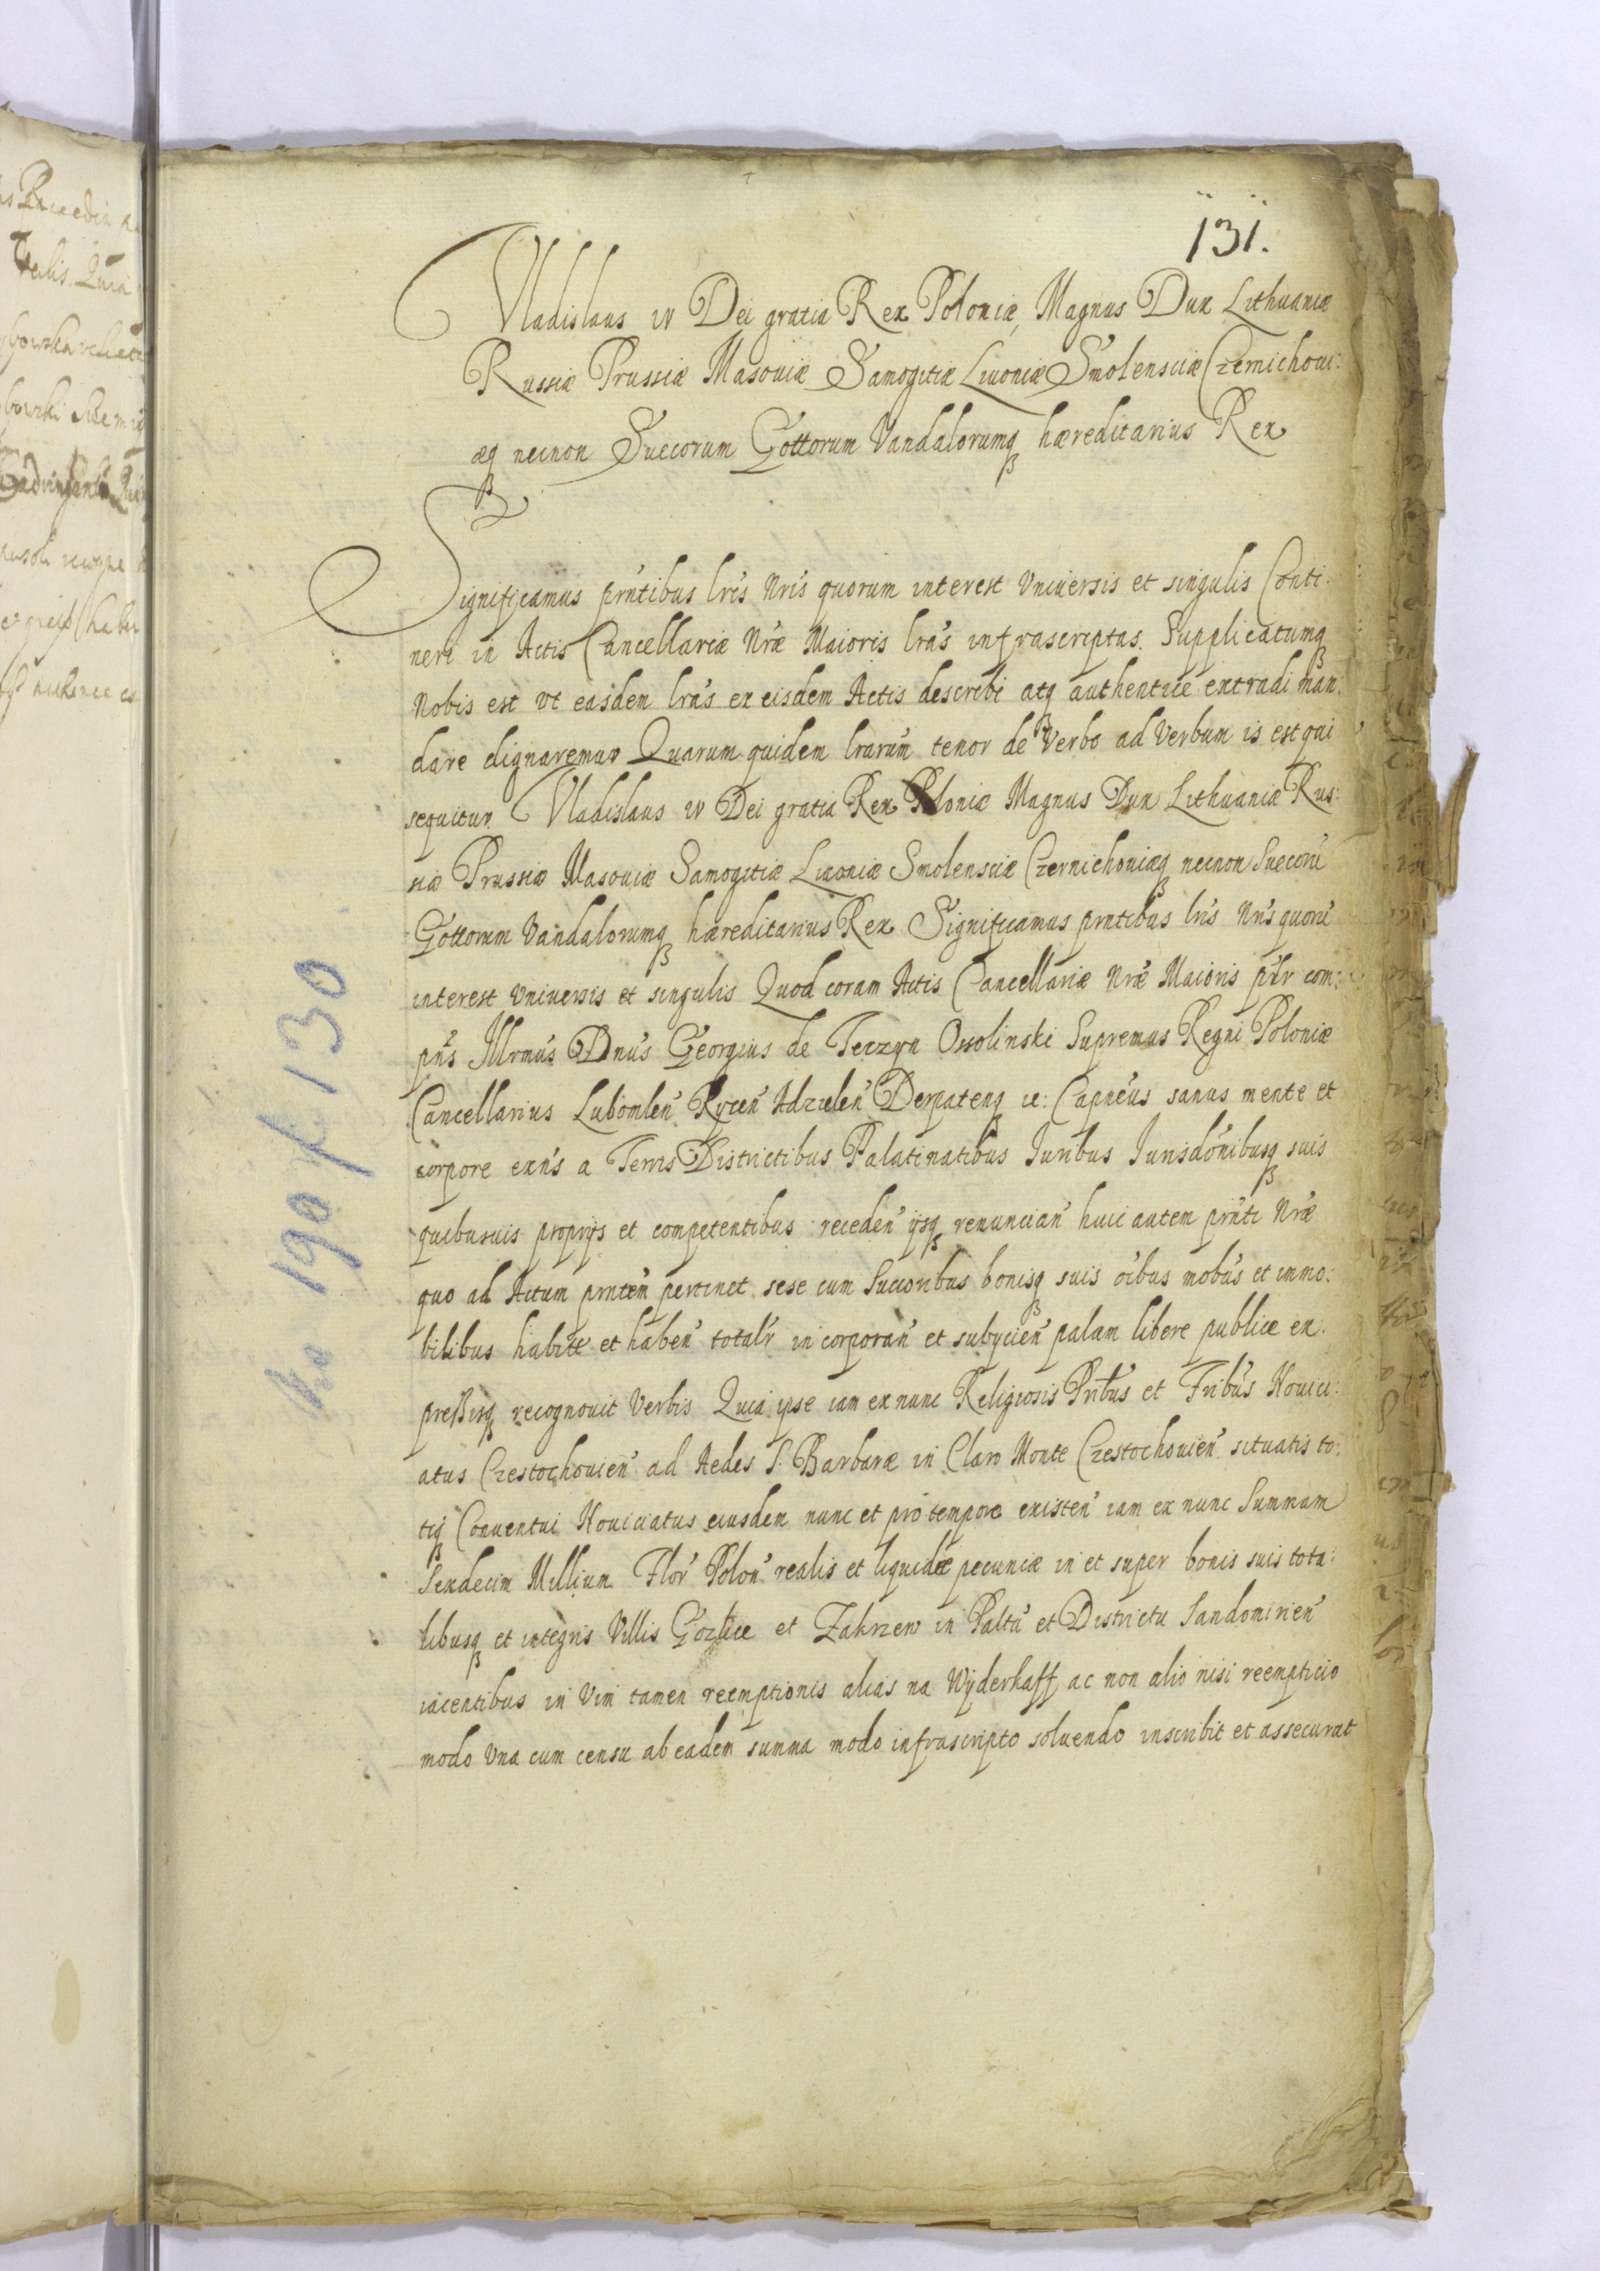 131.
Vladislaus IV Dei gratia Rex Poloniæ, Magnus Dux Lithuaniæ
Russiæ Prussiæ Masoviæ Samogitiæ Livoniæ Smolensciæ Czernichovi:
æq necnon Suecorum Gottorum Vandalorumq hæreditarius Rex
Significamus prntibus lris Nris quorum interest Vniversis et singulis Conti:
neri in Actis Cancellariæ Nræ Maioris lras infrascriptas. Supplicatumq
Nobis est vt easdem lras ex eisdem Actis describi atq authentice extradi man:
dare dignaremur Quarum quidem lrarum tenor de Verbo ad Verbum is est qui
sequitur. Vladislaus IV Dei gratia Rex Poloniæ Magnus Dux Lithuaniæ Rus:
siæ Prussiæ Masoviæ Samogitiæ Livoniæ Smolensciæ Czernichoviæq necnon Suecorū
Gottorum Vandalorumq hæreditarius Rex Significamus prntibus lris Nris quorū
interest Vniversis et singulis Quod coram Actis Cancellariæ Nræ Maioris plr com:
pns Illrmus Dnus Georgius de Teczyn Ossolinski Supremus Regni Poloniæ
Cancellarius Lubomlen Rycen Adzelen Derpatenq etc: Capneus sanus mente et
corpore exns a Terris Districtibus Palatinatibus Iuribus Iurisdonibusq suis
quibusvis proprijs et competentibus receden ijsq renuncian huic autem prnti Nræ
quo ad Actum prntem pertinet sese cum Succoribus bonisq suis oibus mobus et immo:
bilibus habite et haben totalr incorporan et subijcien palam libere publice ex:
preßisq recognovit Verbis Quia ipse iam ex nunc Religiosis Pribus et Fribus Novici:
atus Czestochovien ad Aedes S. Barbaræ in Claro Monte Czestochovien situatis to:
tiq Conventui Noviciatus eiusdem nunc et pro tempore existen iam ex nunc Summam
Sexdecim Millium Flor Polon realis et liquidæ pecuniæ in et super bonis suis tota:
libusq et integris Villis Gozlice et Zakrzew in Paltu et Districtu Sandomirien
iacentibus in Vim tamen reemptionis alias na Wyderkaff ac non alio nisi reempticio
modo Vna cum censu ab eadem summa modo infrascripto solvendo inscribit et assecurat
190 f 130